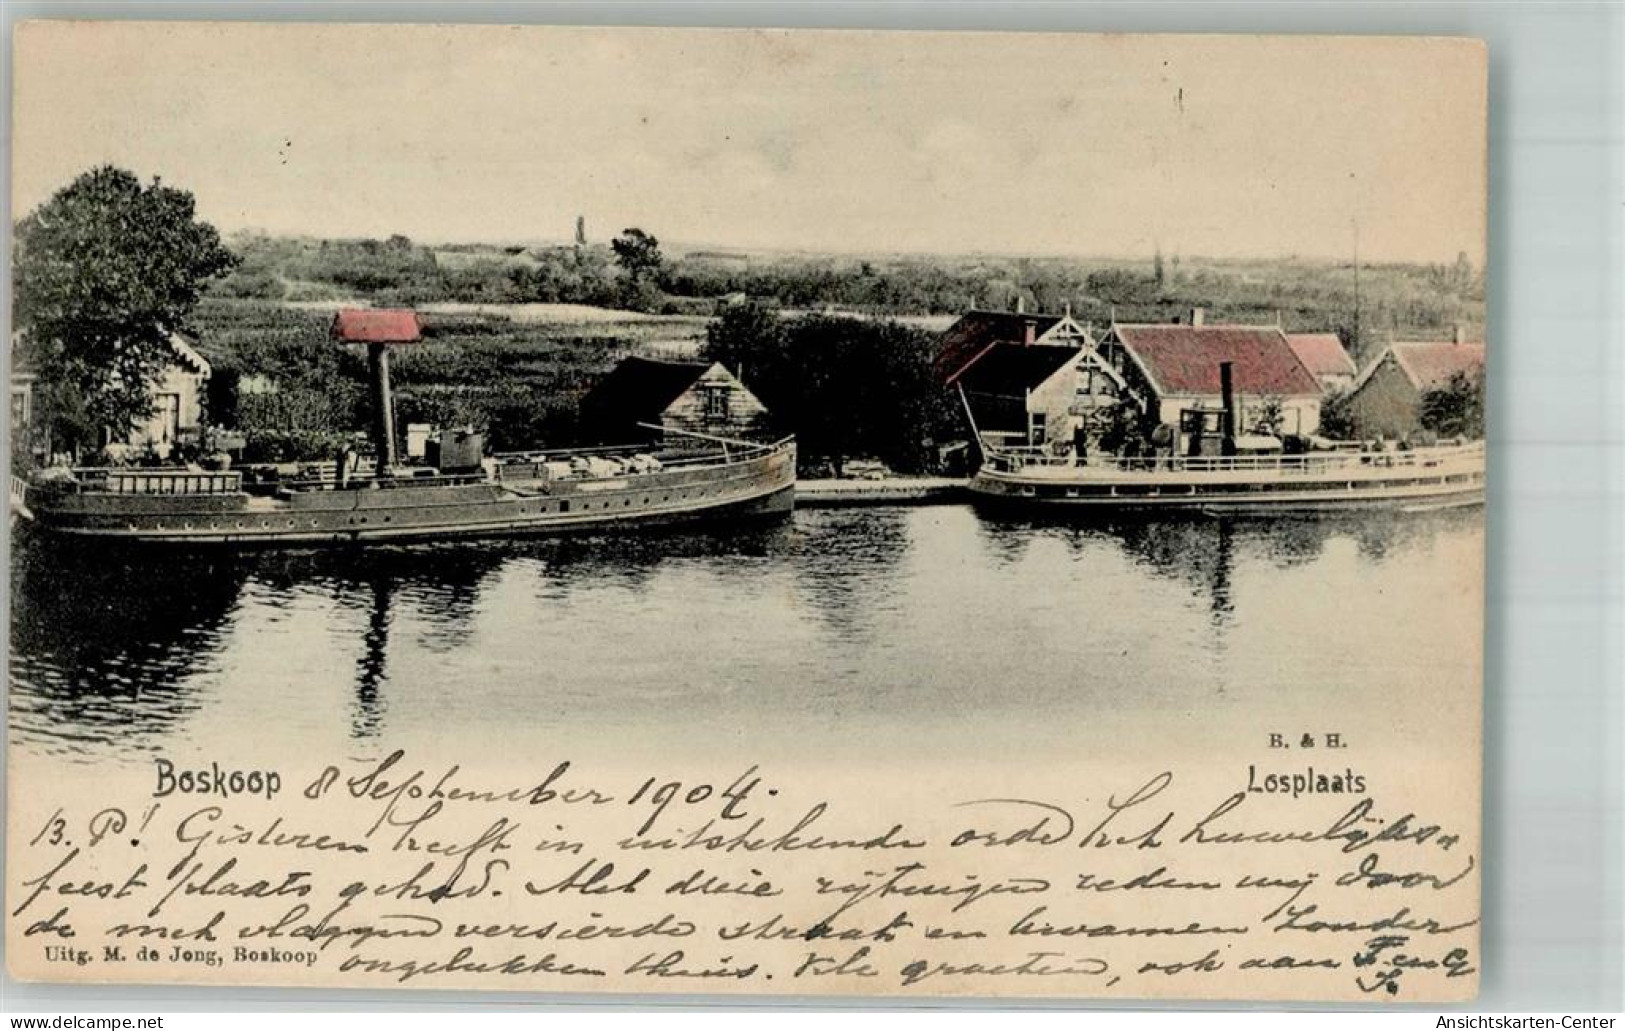 B. & H.
Boskoop 8 September 1904. Losplaats
B. P! Gisteren heeft in uitstekende orde het huwelijks=
feest plaats gehad. Met drie rijtuigen reden wij door
de met vlaggen versierde straat en kwamen zonder
Uitg. M. de Jong, Boskoop ongelukken thuis. Vele groeten, ook aan F. en G
delcampe.net
Ansichtskarten-Center